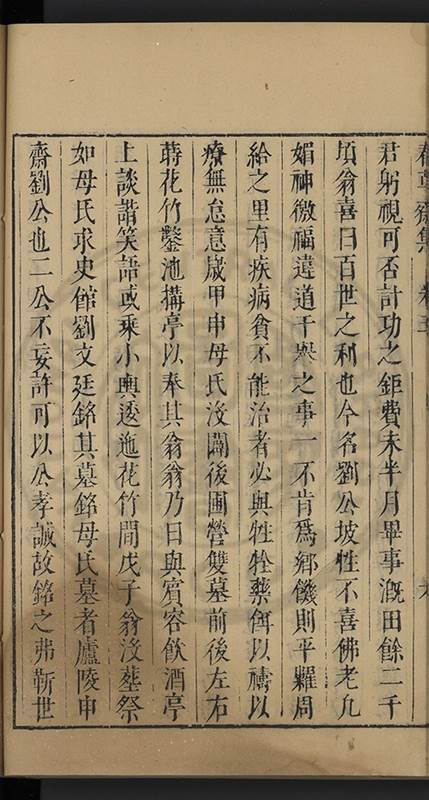 君躬視可否計功之鉅費未半月畢事溉田餘二千
頃翁喜曰百世之利也今名劉公坡性不喜佛老凡
媚神徼福違道干譽之事一不肯爲鄉饑則平糶周
給之里有疾病貧不能治者必與牲牷藥餌以禱以
療無怠意歲甲申母氏沒闢後圃營雙墓前後左右
蒔花竹鑿池搆亭以奉其翁翁乃日與賓客飲酒亭
上談諧笑語或乘小輿逶迤花竹間戊子翁沒塟祭
如母氏求史館劉文廷銘其墓銘母氏墓者廬陵申
齋劉公也二公不妄許可以公孝誠故銘之弗靳世